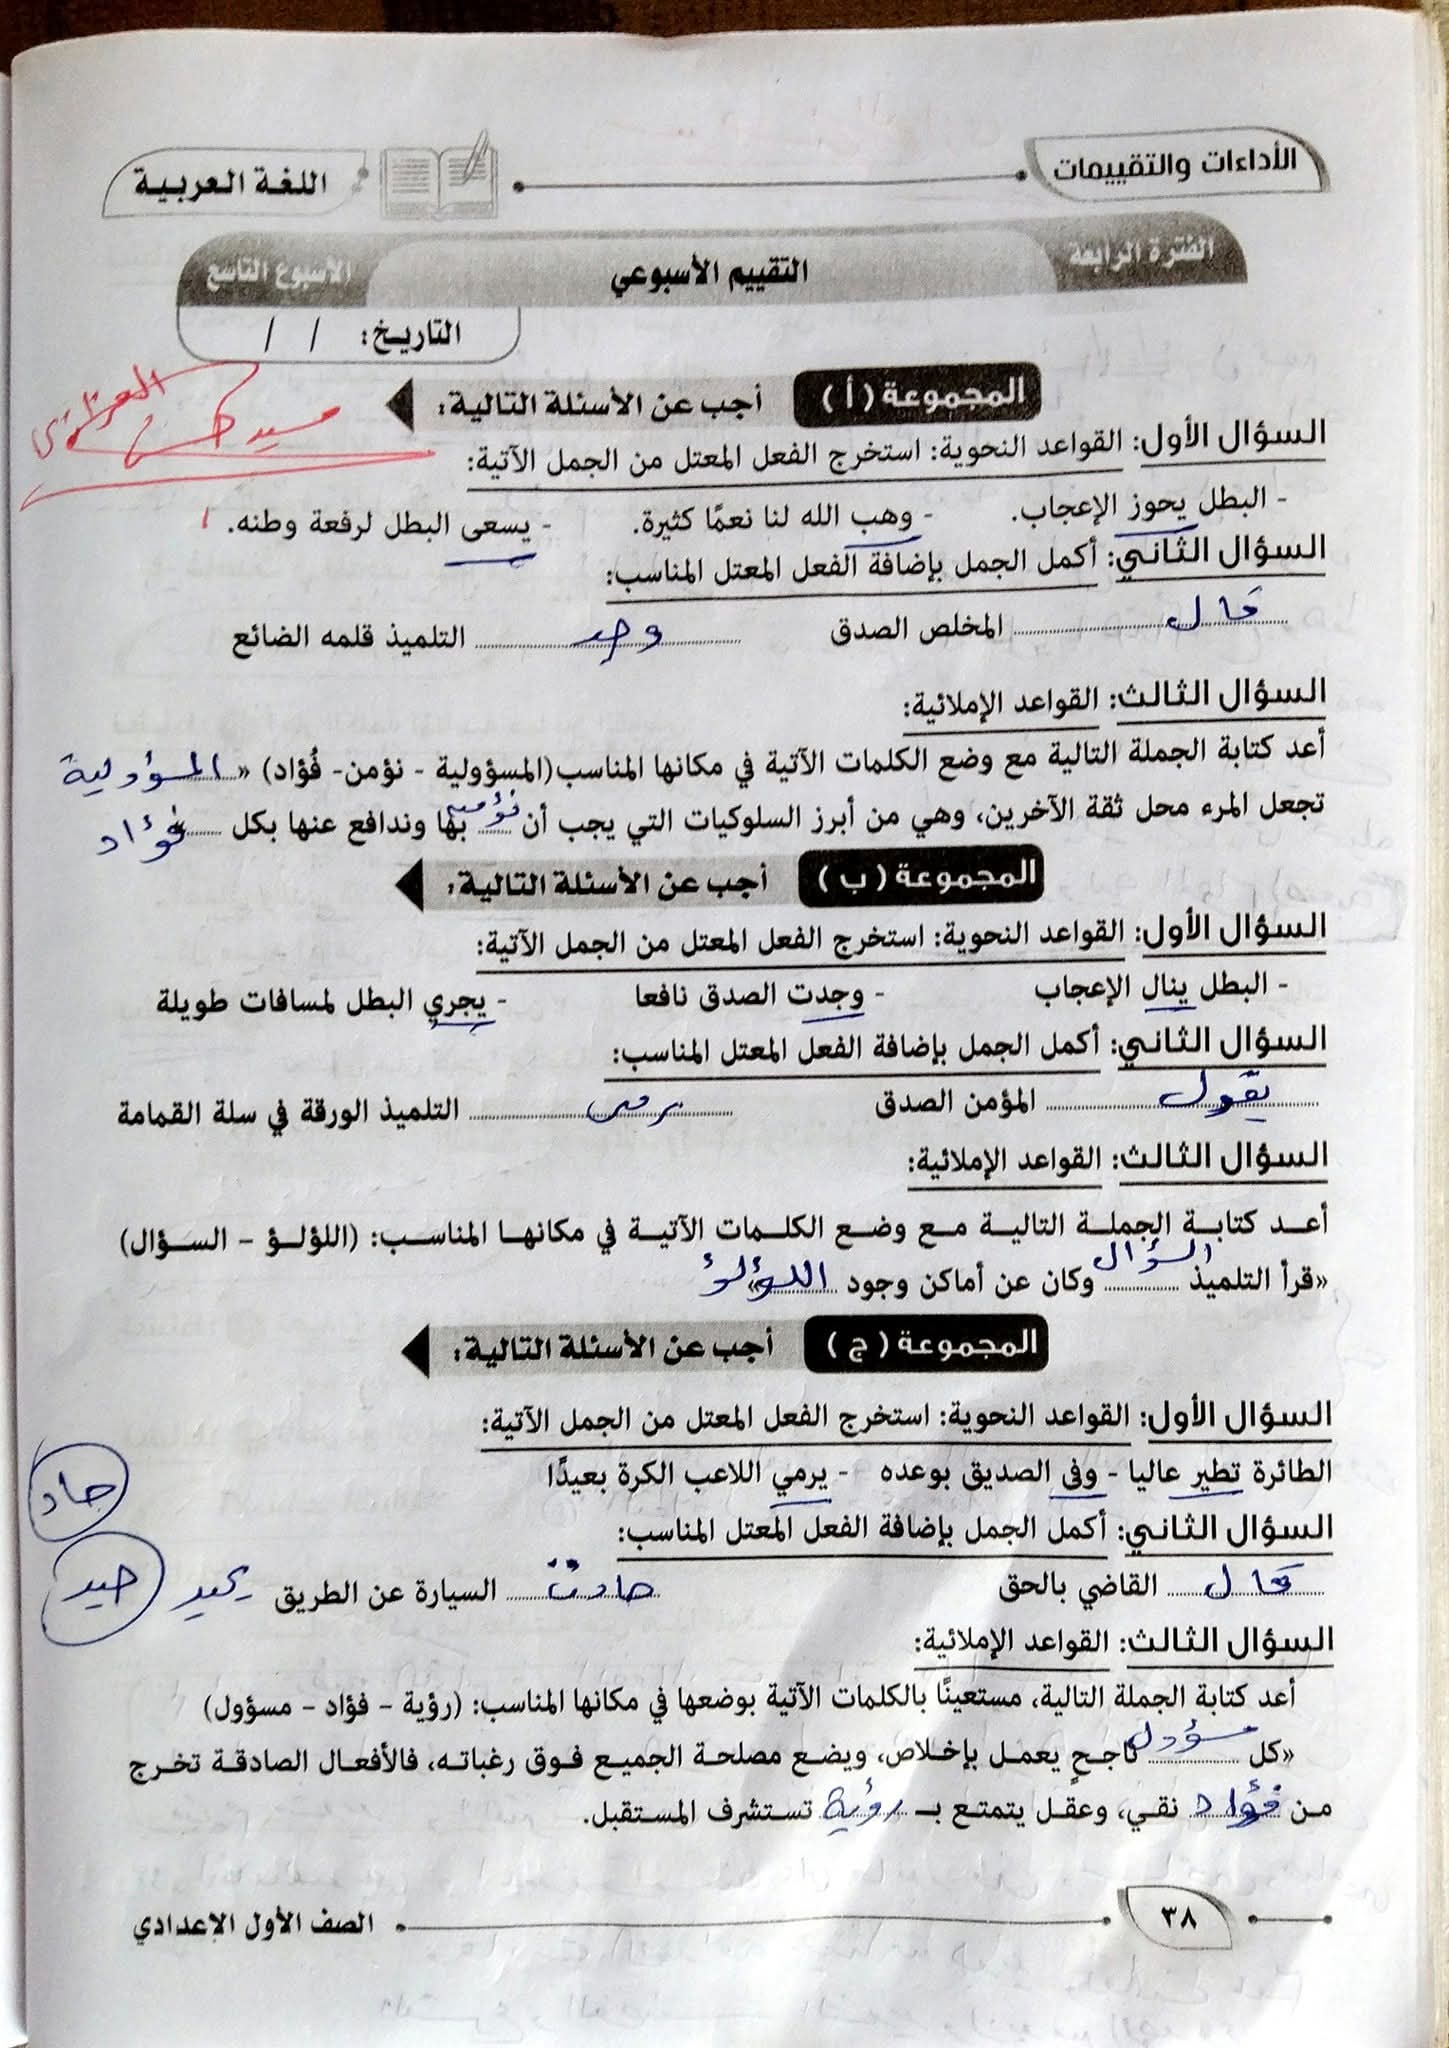 الأداءات والتقييمات
اللغة العربية
الفترة الرابعة
التقييم الأسبوعي
الأسبوع التاسع
التاريخ: / /
المجموعة (أ) أجب عن الأسئلة التالية:
السؤال الأول: القواعد النحوية: استخرج الفعل المعتل من الجمل الآتية:
- البطل يحوز الإعجاب. - وهب الله لنا نعمًا كثيرة. - يسعى البطل لرفعة وطنه.
السؤال الثاني: أكمل الجمل بإضافة الفعل المعتل المناسب:
قال المخلص الصدق وجد التلميذ قلمه الضائع
السؤال الثالث: القواعد الإملائية:
أعد كتابة الجملة التالية مع وضع الكلمات الآتية في مكانها المناسب(المسؤولية - نؤمن- فُؤاد) « المسؤولية
تجعل المرء محل ثقة الآخرين، وهي من أبرز السلوكيات التي يجب أن نؤمن بها وندافع عنها بكل فؤاد
المجموعة (ب) أجب عن الأسئلة التالية:
السؤال الأول: القواعد النحوية: استخرج الفعل المعتل من الجمل الآتية:
- البطل ينال الإعجاب - وجدت الصدق نافعا - يجري البطل لمسافات طويلة
السؤال الثاني: أكمل الجمل بإضافة الفعل المعتل المناسب:
يقول المؤمن الصدق يرمى التلميذ الورقة في سلة القمامة
السؤال الثالث: القواعد الإملائية:
أعد كتابة الجملة التالية مع وضع الكلمات الآتية في مكانها المناسب: (اللؤلؤ – السؤال)
«قرأ التلميذ السؤال وكان عن أماكن وجود اللؤلؤ»
المجموعة (ج) أجب عن الأسئلة التالية:
السؤال الأول: القواعد النحوية: استخرج الفعل المعتل من الجمل الآتية:
الطائرة تطير عاليا - وفى الصديق بوعده - يرمي اللاعب الكرة بعيدًا
حاد
السؤال الثاني: أكمل الجمل بإضافة الفعل المعتل المناسب:
قال القاضي بالحق حادت السيارة عن الطريق يحيد حيد
السؤال الثالث: القواعد الإملائية:
أعد كتابة الجملة التالية، مستعينًا بالكلمات الآتية بوضعها في مكانها المناسب: (رؤية – فؤاد – مسؤول)
«كل مسؤول ناجحٍ يعمل بإخلاص، ويضع مصلحة الجميع فوق رغباته، فالأفعال الصادقة تخرج
من فؤاد نقي، وعقل يتمتع بـ رؤية تستشرف المستقبل.
٣٨
الصف الأول الإعدادي